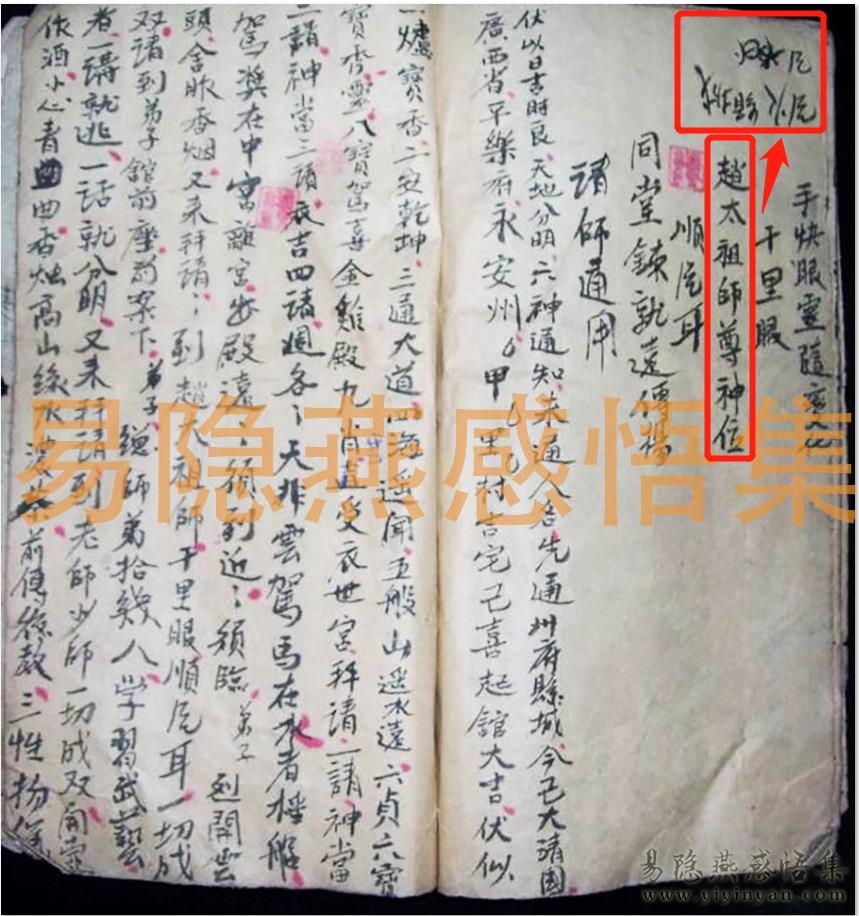 手快眼靈隨變化
千里眼
趙太祖師尊神位
順风耳
同堂鍊就遠傳揚
請師通用
伏以日吉時良天地分明六神通知未通人名先通州府縣城今乙大清國
廣西省平樂府永安州 甲 里 村吉宅乙喜起舘大吉伏似
一爐寶香二安乾坤三通大道四海遥聞五般山遥水遠六貞六寶
寶香靈八寶駕壽金雞殿九肖直受衣世宮拜請一請神當
二請神當二請 吉四請週各天非雲駕馬在水者棰船
駕槳在中宮離宮出殿遠遠須到近近須臨弟子 開雲
頭舍 香烟又来拜請請到趙太祖師千里眼順风耳一切成
双請到弟子舘前座前案下弟子 師弟拾幾人学習武藝
者一講就逃一話就分明又来拜請到老師少師一切成双角靈
作酒小心青 曲香烛高山綠水濃茶前傳後教三性扬
易隐燕感悟集
易隐燕感悟集
www.yiyinyan.com